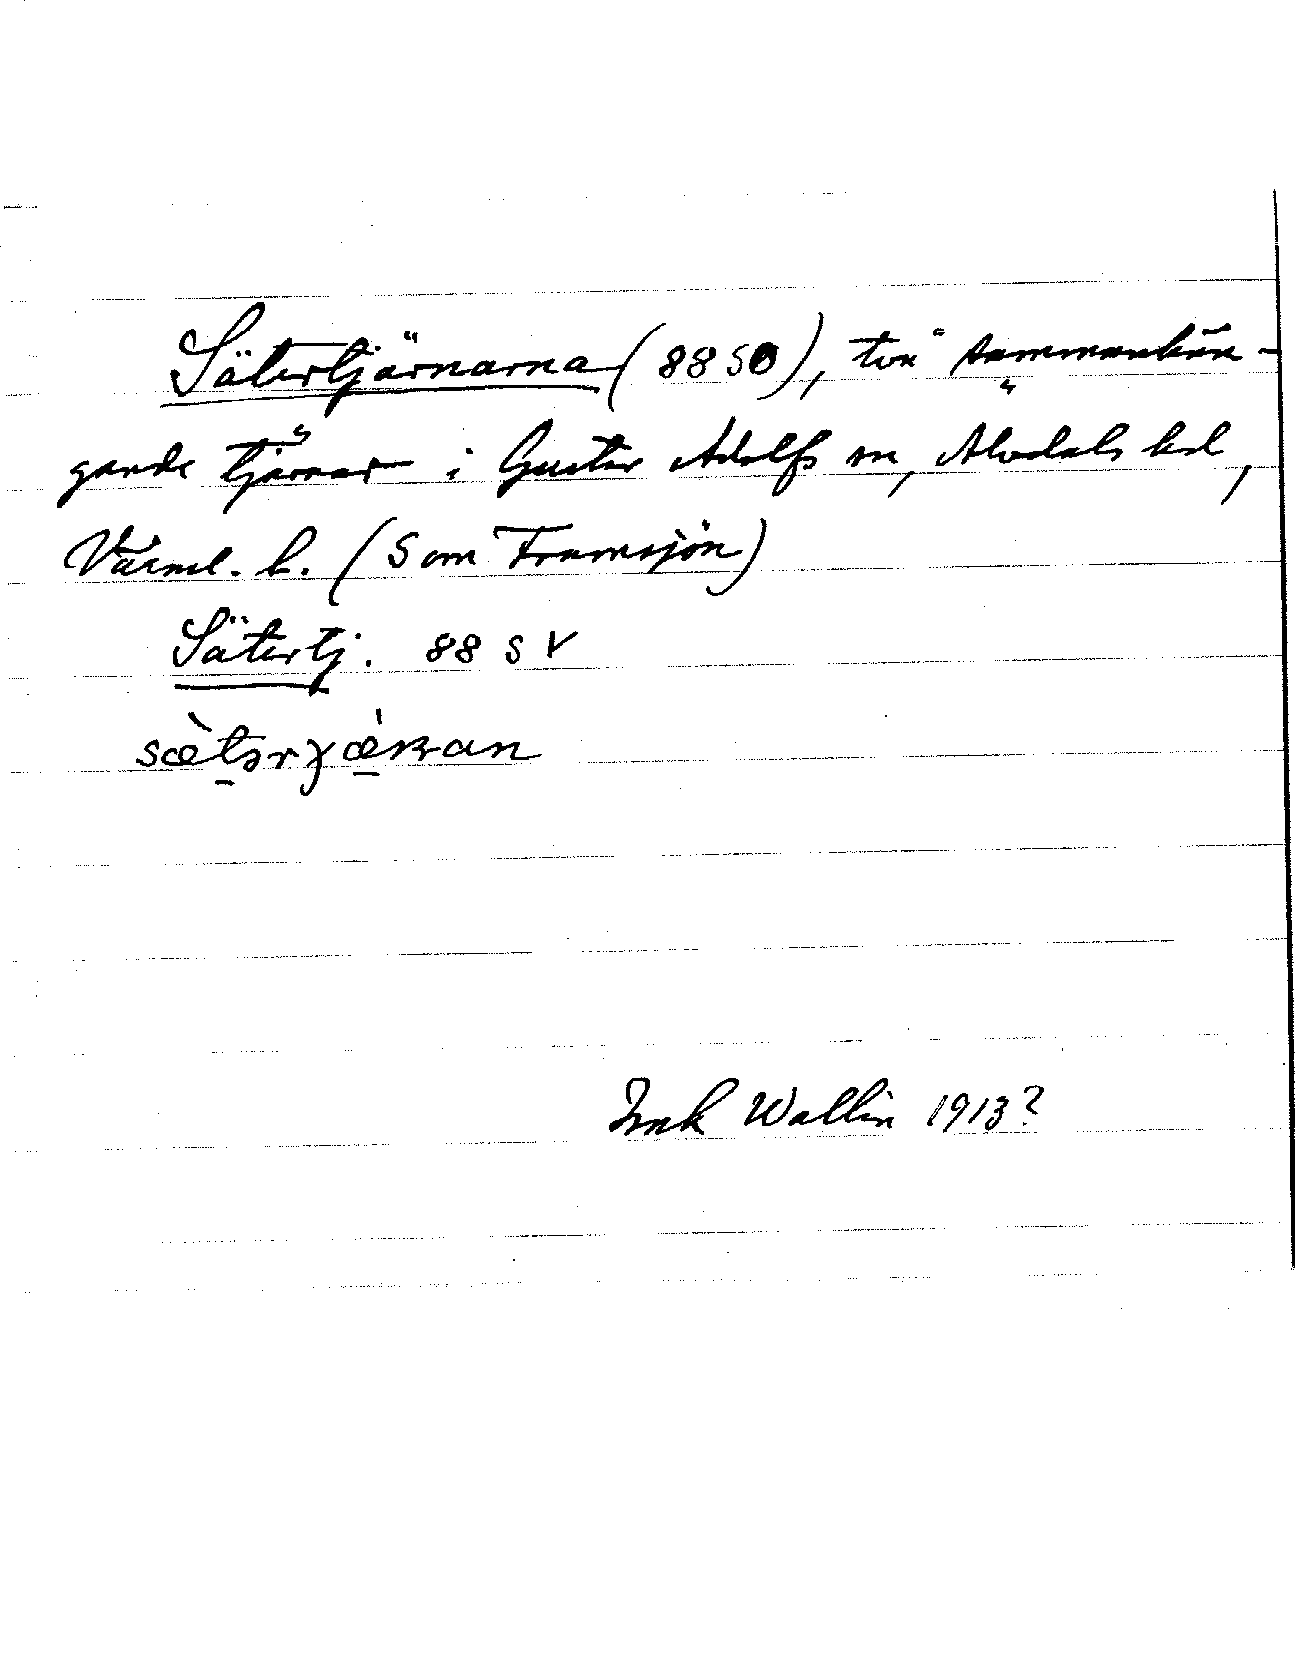 Sätertjärnarna (88 SO), två sammanhän-
gande tjärnar i Gustav Adolfs sn, Älvdals hd,
Värml. l. (Som Framsjön)
Sätertj. 88 SV
Wallin 1913?